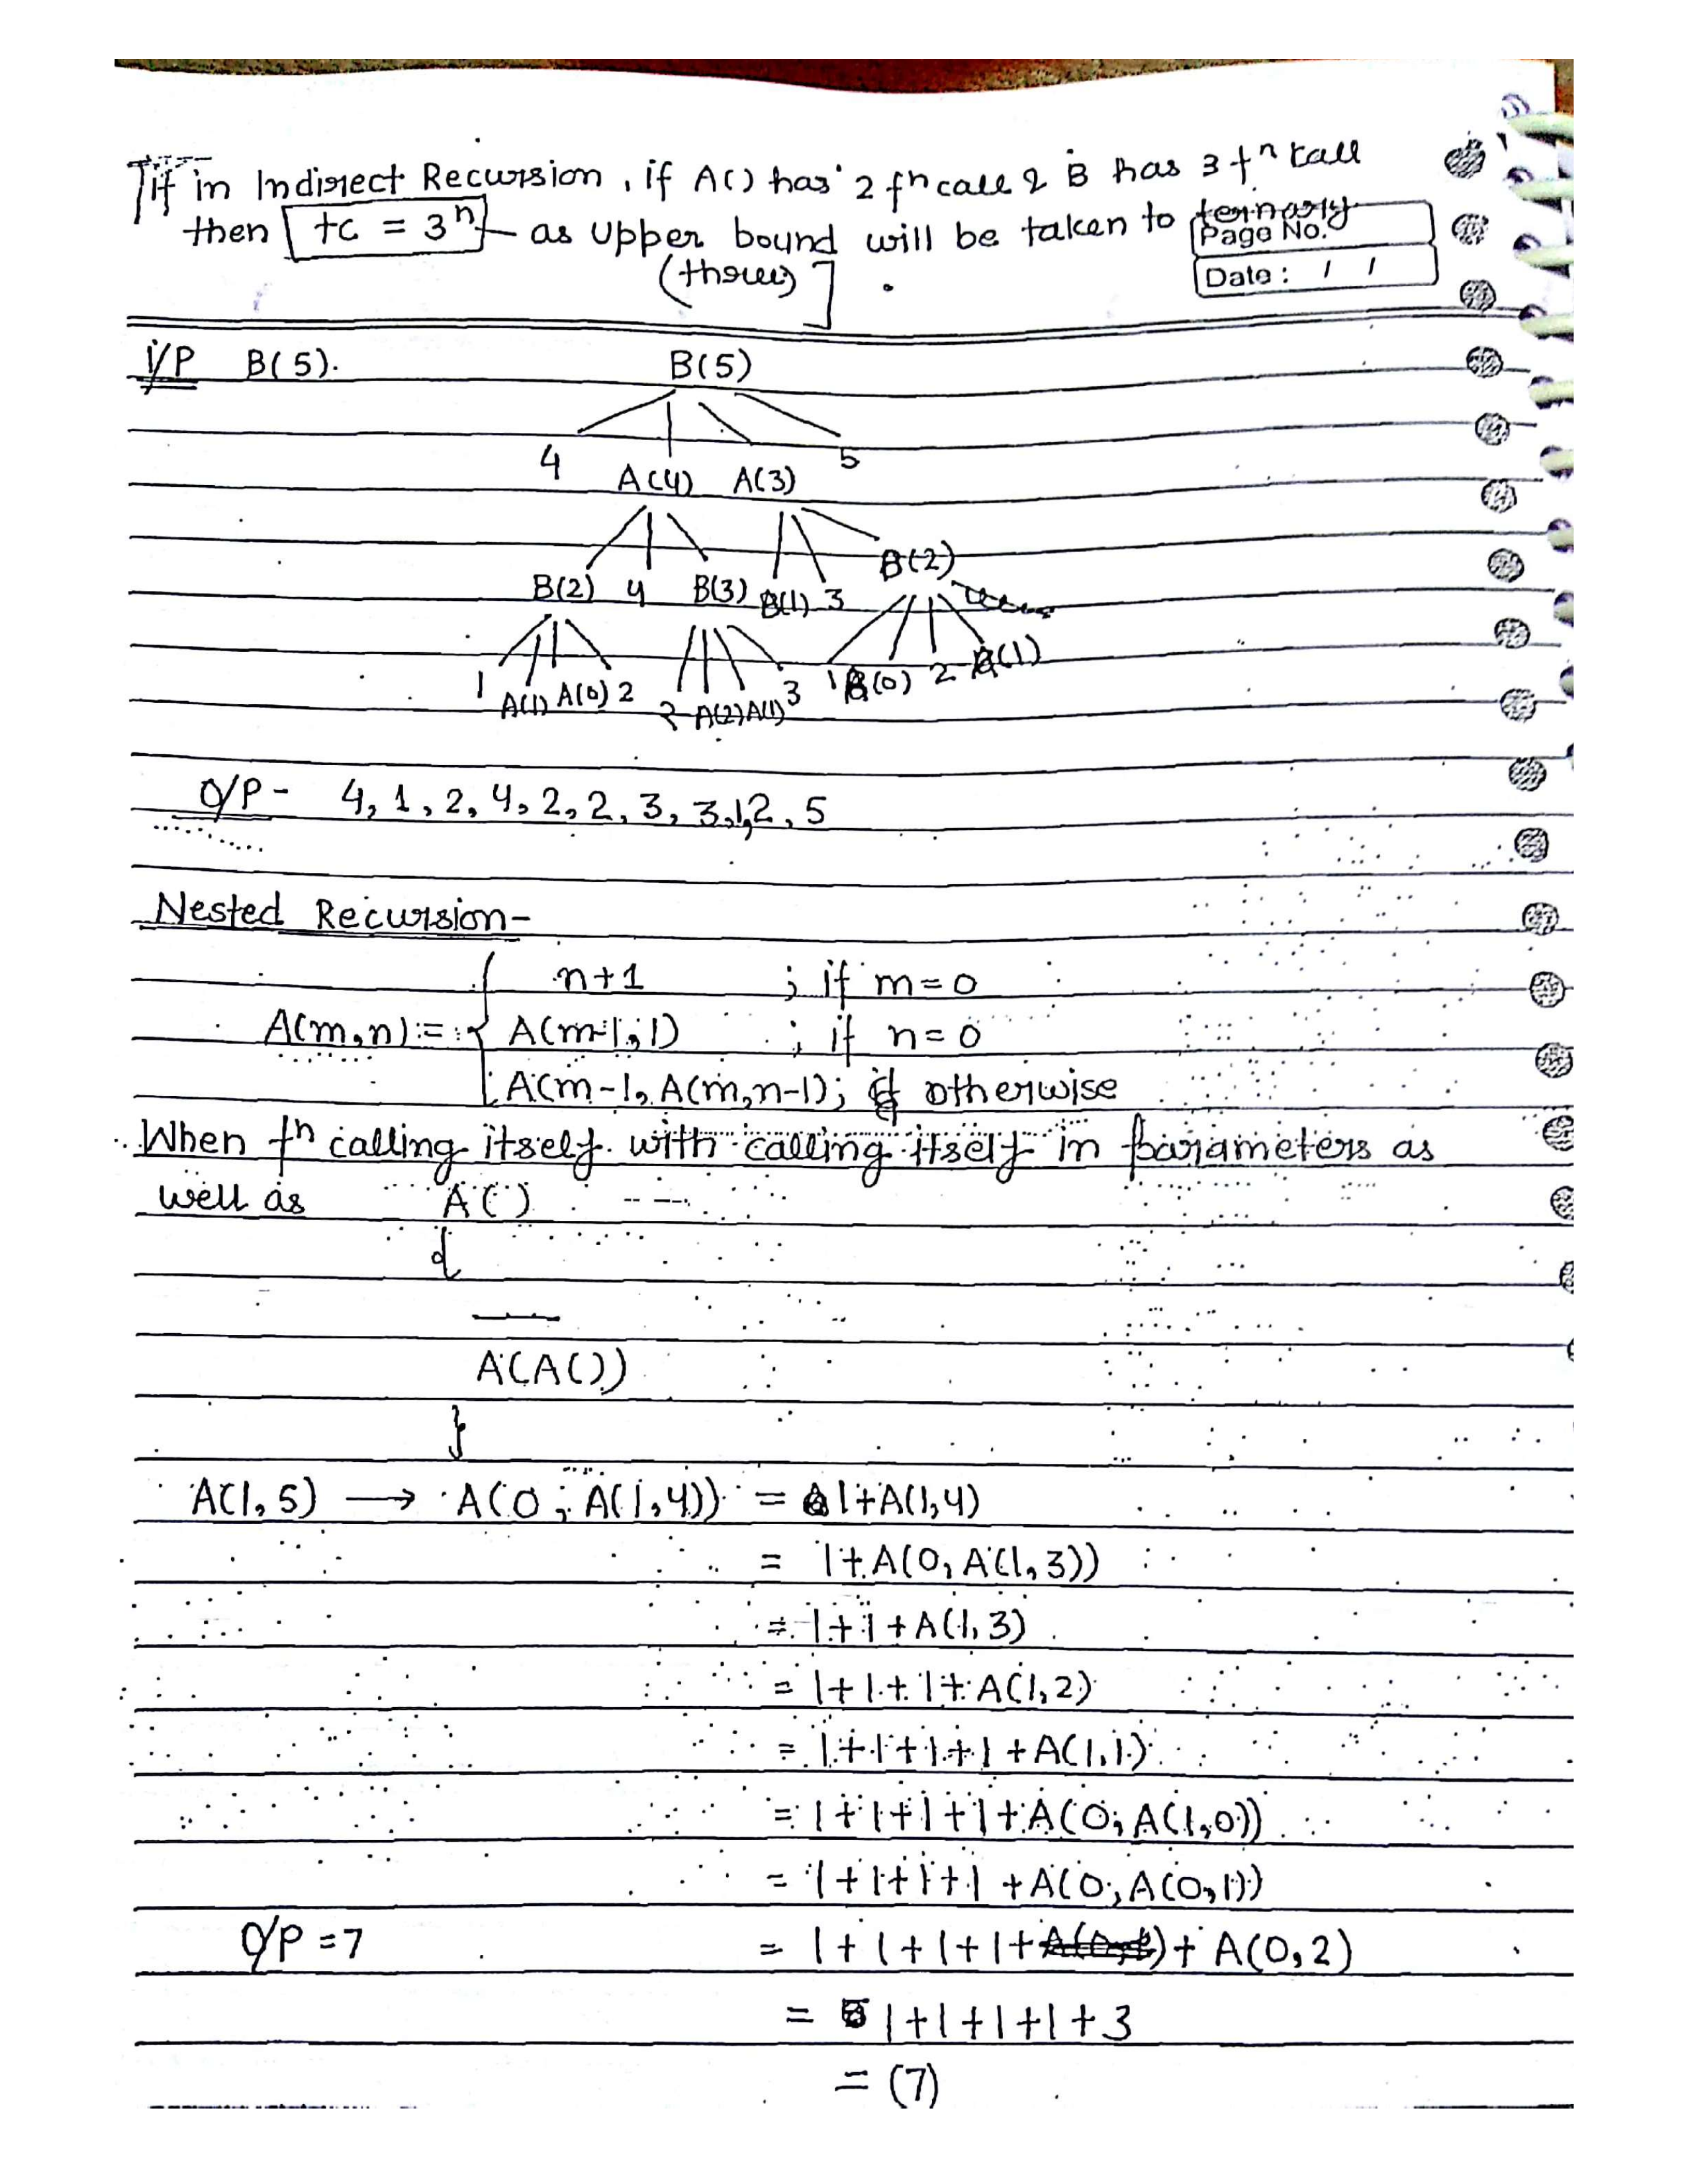 [If in Indirect Recursion, if A() has 2 fⁿ call & B has 3 fⁿ call
then tc = 3ⁿ as upper bound will be taken to ternary
Page No.
(three) ] .
Date : / /
i/P B(5). B(5)
4 A(4) A(3) 5
B(2) 4 B(3) B(1) 3 B(2)
1 A(1) A(0) 2 2 A(2) A(1) 3 1 A(0) 2 A(1)
O/P - 4, 1, 2, 4, 2, 2, 3, 3, 1, 2, 5
Nested Recursion-
n+1 ; if m=0
A(m,n) = { A(m-1, 1) ; if n=0
A(m-1, A(m,n-1); if otherwise
When fⁿ calling itself with calling itself in parameters as
well as A()
{
A(A())
}
A(1,5) → A(0, A(1,4)) = 1+A(1,4)
= 1+A(0, A(1,3))
= 1+1+A(1,3)
= 1+1+1+A(1,2)
= 1+1+1+1+A(1,1)
= 1+1+1+1+A(0, A(1,0))
= 1+1+1+1+A(0, A(0,1))
O/P = 7 = 1+1+1+1+ + A(0,2)
= 1+1+1+1+3
= (7)